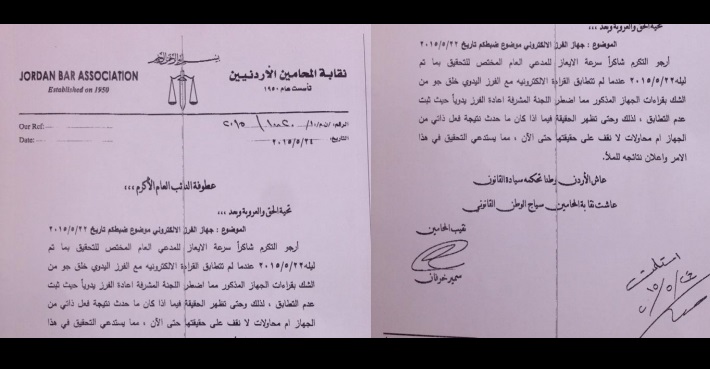 نقابة المحامين الأردنيين
تأسست عام ١٩٥٠
JORDAN BAR ASSOCIATION
Established on 1950
Our Ref:
Date:
الرقم:
التاريخ: ٢٠١٥/٥/٢٤
عطوفة النائب العام الأكرم ،،،
تحية الحق والعروبة وبعد ،،،
الموضوع : جهاز الفرز الالكتروني موضوع ضبطكم تاريخ ٢٠١٥/٥/٢٢
أرجو التكرم شاكراً سرعة الايعاز للمدعي العام المختص للتحقيق بما تم
ليله ٢٠١٥/٥/٢٢ عندما لم تتطابق القراءة الالكترونيه مع الفرز اليدوي خلق جو من
الشك بقراءات الجهاز المذكور مما اضطر اللجنة المشرفة اعادة الفرز يدوياً حيث ثبت
عدم التطابق ، لذلك وحتى تظهر الحقيقة فيما اذا كان ما حدث نتيجة فعل ذاتي من
الجهاز ام محاولات لا نقف على حقيقتها حتى الآن ، مما يستدعي التحقيق في هذا
تحية الحق والعروبة وبعد ،،،
الموضوع : جهاز الفرز الالكتروني موضوع ضبطكم تاريخ ٢٠١٥/٥/٢٢
أرجو التكرم شاكراً سرعة الايعاز للمدعي العام المختص للتحقيق بما تم
ليله ٢٠١٥/٥/٢٢ عندما لم تتطابق القراءة الالكترونيه مع الفرز اليدوي خلق جو من
الشك بقراءات الجهاز المذكور مما اضطر اللجنة المشرفة اعادة الفرز يدوياً حيث ثبت
عدم التطابق ، لذلك وحتى تظهر الحقيقة فيما اذا كان ما حدث نتيجة فعل ذاتي من
الجهاز ام محاولات لا نقف على حقيقتها حتى الآن ، مما يستدعي التحقيق في هذا
الامر واعلان نتائجه للملأ.
عاش الأردن وطنا تحكمه سيادة القانون
عاشت نقابة المحامين سياج الوطن القانوني
نقيب المحامين
سمير خرفان
استلمت